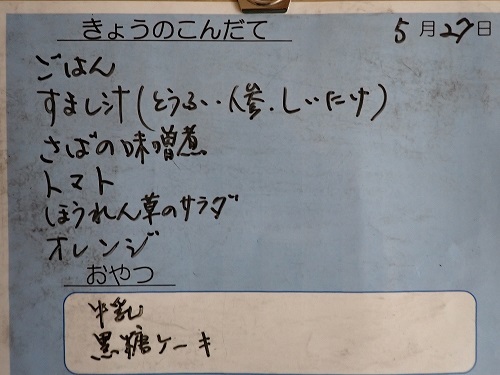 きょうのこんだて
5月27日
ごはん
すまし汁(とうふ・人参・しいたけ)
さばの味噌煮
トマト
ほうれん草のサラダ
オレンジ
おやつ
牛乳
黒糖ケーキ